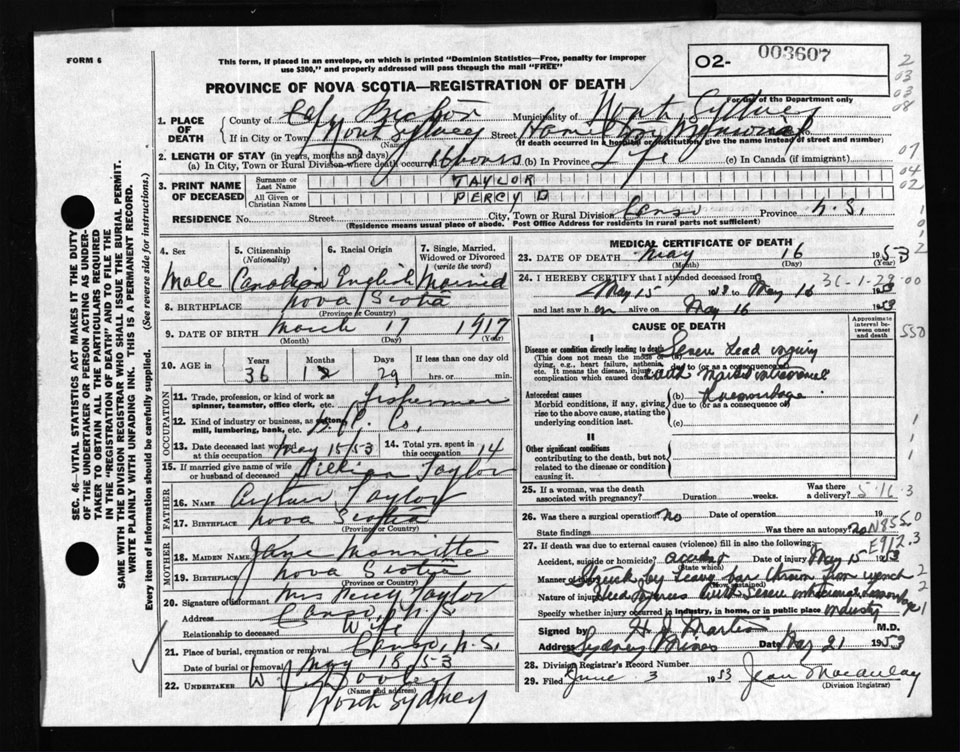 FORM 6
This form, if placed in an envelope, on which is printed "Dominion Statistics—Free, penalty for improper
use $300," and properly addressed will pass through the mail "FREE"
02- 003607
For use of the Department only
PROVINCE OF NOVA SCOTIA—REGISTRATION OF DEATH
1. PLACE OF DEATH
County of Cape Breton Municipality of North Sydney
If in City or Town North Sydney Street Hamilton Memorial
(Name) (If death occurred in a hospital or institution, give the name instead of street and number)
2. LENGTH OF STAY (in years, months and days)
(a) In City, Town or Rural Division where death occurred 16 hours (b) In Province Life (c) In Canada (if immigrant)
3. PRINT NAME OF DECEASED
Surname or Last Name TAYLOR
All Given or Christian Names PERCY D
RESIDENCE No. Street City, Town or Rural Division Canso Province N.S.
(Residence means usual place of abode. Post Office Address for residents in rural parts not sufficient)
4. Sex Male
5. Citizenship (Nationality) Canadian
6. Racial Origin English
7. Single, Married, Widowed or Divorced (write the word) Married
8. BIRTHPLACE Nova Scotia
(Province or Country)
9. DATE OF BIRTH March 17 1917
(Month) (Day) (Year)
10. AGE in Years 36 Months Days 29 If less than one day old hrs. or min.
OCCUPATION
11. Trade, profession, or kind of work as spinner, teamster, office clerk, etc. Fisherman
12. Kind of industry or business, as mill, lumbering, bank, etc.
13. Date deceased last worked at this occupation May 15/53
14. Total yrs. spent in this occupation 14
15. If married give name of wife or husband of deceased Lillian Taylor
FATHER
16. NAME Taylor
17. BIRTHPLACE Nova Scotia
(Province or Country)
MOTHER
18. MAIDEN NAME Jane
19. BIRTHPLACE Nova Scotia
(Province or Country)
20. Signature of informant Mrs Percy Taylor
Address Canso, N.S.
Relationship to deceased Wife
21. Place of burial, cremation or removal Canso, N.S.
Date of burial or removal May 18 53
22. UNDERTAKER W. J. Dooley
(Name and address)
North Sydney
MEDICAL CERTIFICATE OF DEATH
23. DATE OF DEATH May 16 1953
(Month) (Day) (Year)
24. I HEREBY CERTIFY that I attended deceased from
May 15 to May 16 1953
and last saw h alive on May 16 1953
CAUSE OF DEATH
Approximate interval between onset and death
I
Disease or condition directly leading to death (a) Severe head injury
(This does not mean the mode of dying, e.g., heart failure, asthenia, etc. It means the disease, injury or complication which caused death.)
due to (or as a consequence of)
with
Antecedent causes (b) haemorrhage
Morbid conditions, if any, giving rise to the above cause, stating the underlying condition last.
due to (or as a consequence of)
(c)
II
Other significant conditions
contributing to the death, but not related to the disease or condition causing it.
25. If a woman, was the death associated with pregnancy? Duration weeks. Was there a delivery?
26. Was there a surgical operation? no Date of operation 19
State findings Was there an autopsy? no
27. If death was due to external causes (violence) fill in also the following:
Accident, suicide or homicide? accident Date of injury May 15 1953
(State which)
Manner of injury Struck by heavy bar thrown from wench
(How sustained)
Nature of injury Head injuries with severe intracranial haemorrhage
Specify whether injury occurred in industry, in home, or in public place industry
Signed by H. J. Martin M.D.
Address Sydney Mines Date May 21 1953
28. Division Registrar's Record Number
29. Filed June 3 1953 Jean Macaulay
(Division Registrar)
SEC. 46—VITAL STATISTICS ACT MAKES IT THE DUTY
OF THE UNDERTAKER OR PERSON ACTING AS UNDER-
TAKER TO OBTAIN ALL THE PARTICULARS REQUIRED
IN THE "REGISTRATION OF DEATH" AND TO FILE THE
SAME WITH THE DIVISION REGISTRAR WHO SHALL ISSUE THE BURIAL PERMIT.
WRITE PLAINLY WITH UNFADING INK. THIS IS A PERMANENT RECORD.
Every item of information should be carefully supplied. (See reverse side for instructions.)
2
03
03
08
07
04
02
550
N855.0
E912.3